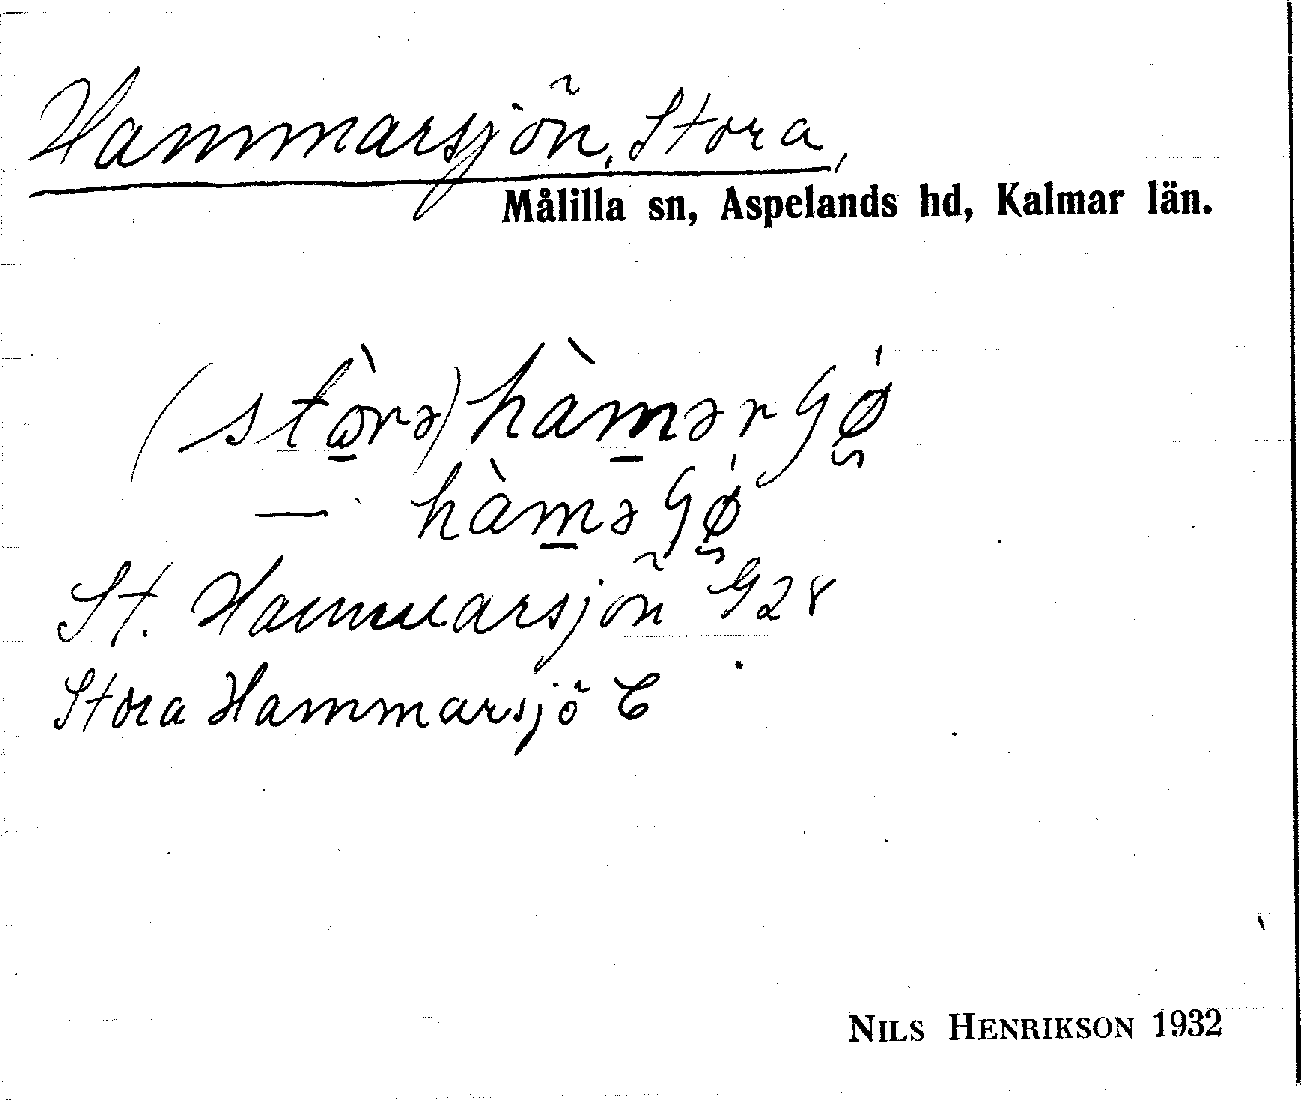 Hammarsjön, Stora,
Målilla sn, Aspelands hd, Kalmar län.
(stò̱rə) hàm̱ərɧǿ
— hàm̱əɧǿ
St. Hammarsjön G28
Stora Hammarsjö C
NILS HENRIKSON 1932